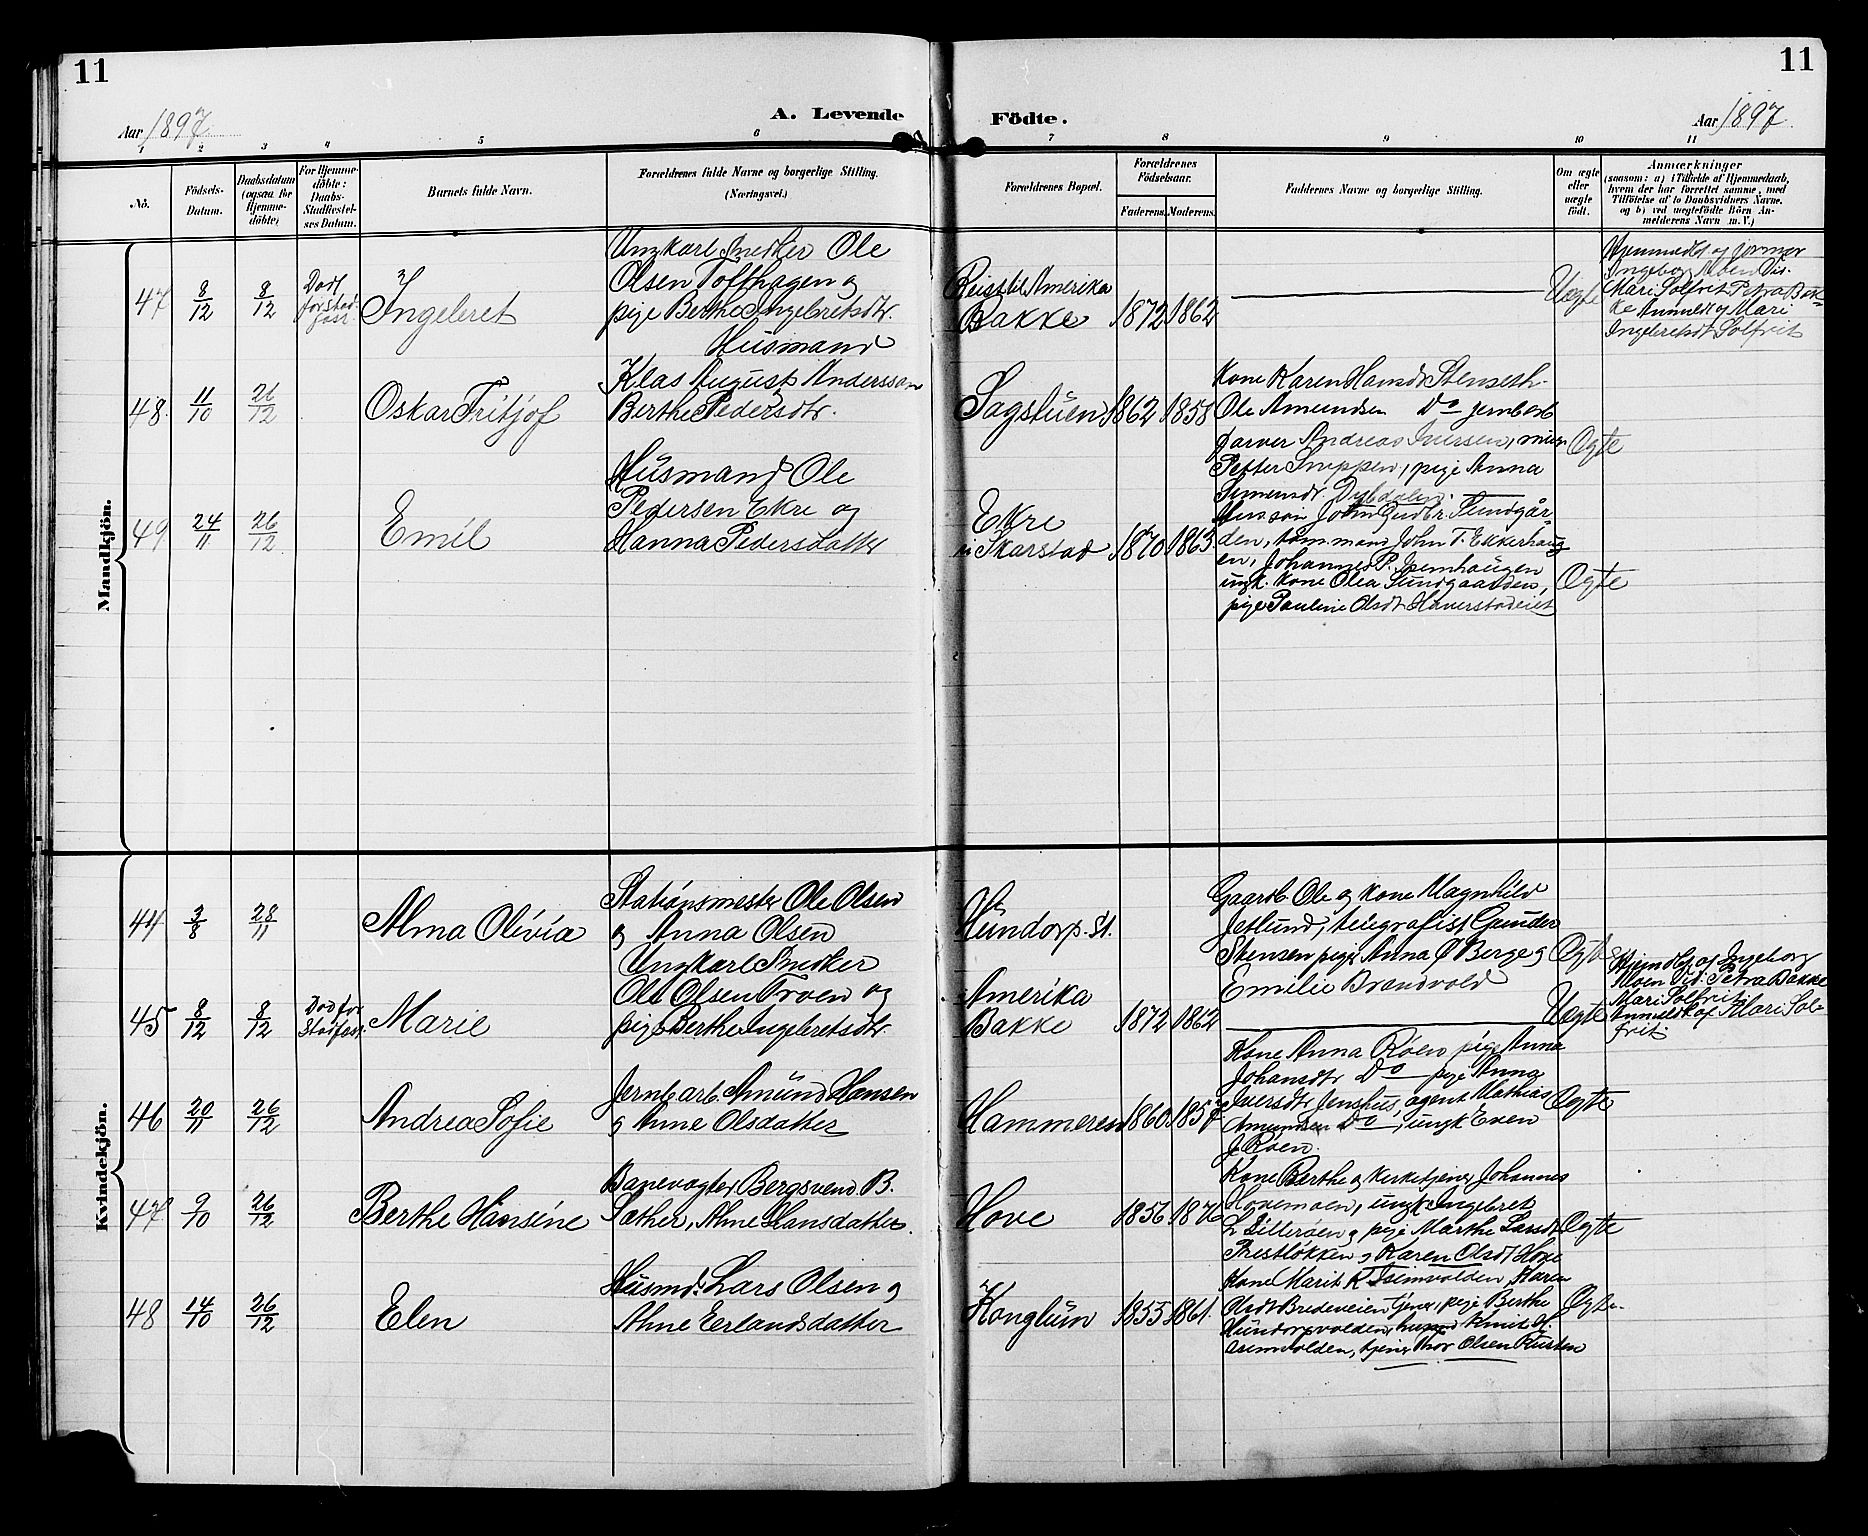 11
11
Aar 1897
A. Levende Födte.
Aar 1897
1 2 3 4 5 6 7 8 9 10 11
No.
Födsels-Datum.
Daabsdatum (ogsaa for Hjemme-döbte)
For Hjemme-döbte: Daabs-Stadfæstel-ses Datum.
Barnets fulde Navn.
Forældrenes fulde Navne og borgerlige Stilling. (Næringsvei.)
Forældrenes Bopæl.
Forældrenes Födselsaar.
Faderens. Moderens.
Faddernes Navne og borgerlige Stilling.
Om ægte eller uægte födt.
Anmærkninger
(saasom: a) i Tilfælde af Hjemmedaab,
hvem der har forrettet samme, med
Tilföielse af to Daabsvidners Navne.
og b) ved uægtefödte Börn An-
melderens Navn m. V.)
Mandkjön.
47
8/12
8/12
Död
før stad-
Ingebret
Ungkarl Snedker Ole
Olsen Tofthagen og
pige Berthe Ingebretsdtr.
Reist til Amerika
Bakke
1872 1862
Uægte
Hjemmedbt og jormor
Ingebor Moen Vid.
Mari Solfrit Petra Bak-
ke Anmeldt og Mari
Ingebretsdt Solfrit
48.
11/10
26/12
Oskar Fritjof
Husmand
Klas August Andersson
Berthe Pedersdtr.
Sagstuen
1862 1858
Kone Karen Hansdt Stenseth
Ole Amundsen Do jernbarb
farver Andreas Iversen,
Petter Snippen, pige Anna
Simensdt. Dybdalen.
Ægte
49
24/11
26/12
Emil
Husmand Ole
Pedersen Ekre og
Hanna Pedersdatter
Ekre
i Skarstad
1870 1863
Husson John Gudbr. Sundgår-
den, tøm.mand John T. Ekkerhaug
en, Johannes P.
ungk. kone Olea Sundgaarden,
pige Pauline Olsdt Haverstadeiet
Ægte
Kvindekjön.
44
3/8
28/11
Alma Olivia
Stationsmester Ole Olsen
og Anna Olsen
Hundorp. St.
Gaardb Ole og kone Magnhild
Jetlund, telegrafist Gunder
Stensen pige Anna Ø Berge og
Emilie Brandvold
Ægte
45
8/12
8/12
Død før
Stadfæst
Marie
Ungkarl Snedker
Ole Olsen Troen og
pige Berthe Ingebretsdtr.
Amerika
Bakke
1872 1862
Uægte
Hjemdbt af Ingeborg
Moen Vid: Petra Bakke
Mari Solfrit.
Anmeldt af Mari Sol-
frit.
46
20/11
26/12
Andrea Sofie
Jernb arb. Amund Hansen
og Anne Olsdatter
Hammeren
1860 1857
Kone Anna Røen pige Anna
Johansdtr Do pige Anna
Iversdtr Jenshus, agent Mathias
Amundsen Do, ungk Even
J Røen.
Ægte
47
9/10
26/12
Berthe Hansine
Banevogter Bergsvend B.
Sæther, Anne Hansdatter
Hove
1856 1876
Kone Berthe og kirketjener Johannes
Hovemoen, ungk Ingebret
L Lillerøen og pige Marthe Larsdt
Prestløkken og Karen Olsdt Hove
Ægte
48
14/10
26/12
Elen
Husmd. Lars Olsen og
Anne Erlandsdatter
Konglum
1855 1861.
Kone Marit K Isumvolden, Karen
Olsdt Bredeveien tjener, pige Berthe
Hundorpvolden, husmd Knut H.
Isumvolden, tjener Thor Olsen Rusten
Ægte